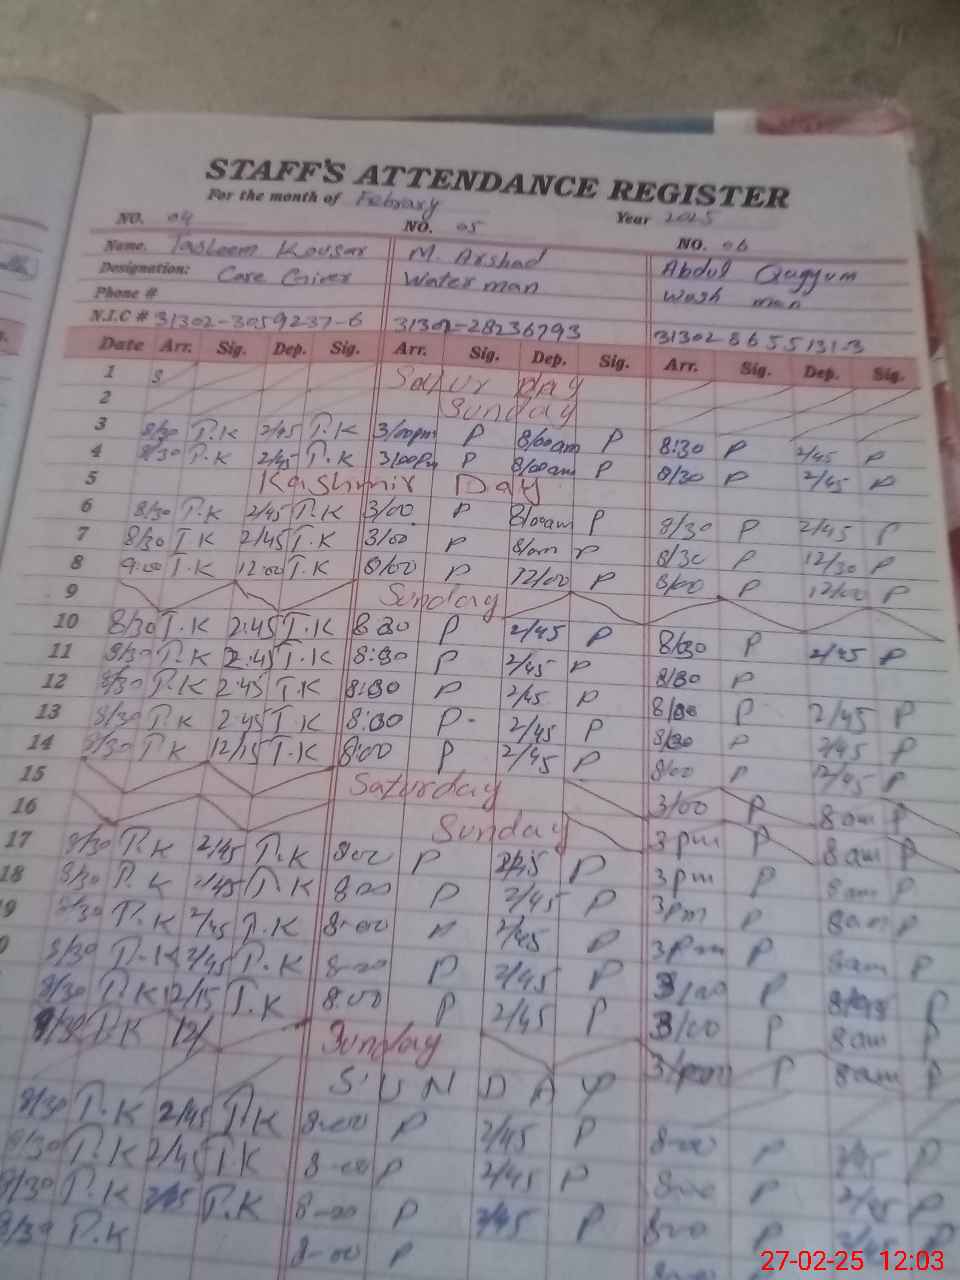 STAFF'S ATTENDANCE REGISTER
For the month of Febrary Year 2025
NO. 04 NO. 05 NO. 06
Name. Tasleem Kousar M. Arshad Abdul Qayyum
Designation: Care Giver Water man Wash man
Phone #
N.I.C # 31302-3059237-6 31302-28236793 31302865513
Date Arr. Sig. Dep. Sig. Arr. Sig. Dep. Sig. Arr. Sig. Dep. Sig.
1 S Satur day
2 Sunday
3 8/30 T.K 2/45 T.K 3/00pm P 8/00am P 8:30 P 2/45 P
4 8/30 T.K 2/45 T.K 3/00pm P 8/00am P 8/30 P 2/45 P
5 Kashmir Day
6 8/30 T.K 2/45 T.K 3/00 P 8/00am P 8/30 P 2/45 P
7 8/30 T.K 2/45 T.K 3/00 P 8/am P 8/30 P 12/30 P
8 9:00 T.K 12:00 T.K 8/00 P 12/00 P 8/00 P 12/00 P
9 Sunday
10 8/30 T.K 2:45 T.K 8:30 P 2/45 P 8/30 P 2/45 P
11 8/30 T.K 2:45 T.K 8:30 P 2/45 P 8/30 P
12 8/30 T.K 2:45 T.K 8:30 P 2/45 P 8/30 P 2/45 P
13 8/30 T.K 2:45 T.K 8:30 P 2/45 P 8/30 P 2/45 P
14 8/30 T.K 12/15 T.K 8:00 P 2/45 P 8/00 P 12/45 P
15 Saturday 3/00 P 8am P
16 Sunday 3pm P 8am P
17 8/30 T.K 2/45 T.K 8:00 P 2/45 P 3pm P 8am P
18 8/30 T.K 2/45 T.K 8-00 P 2/45 P 3pm P 8am P
9 8/30 T.K 2/45 T.K 8-00 P 2/45 P 3pm P 8am P
0 8/30 T.K 2/45 T.K 8-00 P 2/45 P 3/00 P P
8/30 T.K 12/15 T.K 8:00 P 2/45 P 3/00 P 8am P
8/30 T.K 12/ Sunday 3/pm P 8am P
S U N D A Y
8/30 T.K 2/45 T.K 8-00 P 2/45 P 8-00 P 2/45 P
8/30 T.K 2/45 T.K 8-00 P 2/45 P 8-00 P 2/45 P
8/30 T.K 2/45 T.K 8-00 P 2/45 P 8-00 P 2/45 P
8/30 T.K 8-00 P
27-02-25 12:03